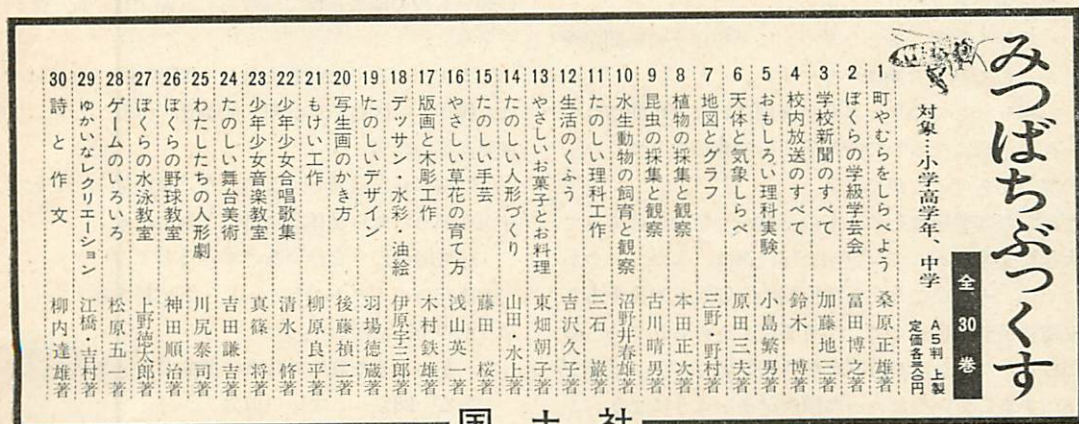 みつばちぶっくす
全30巻
対象…小学高学年、中学
A5判 上製
定価各
1 町やむらをしらべよう 桑原正雄著
2 ぼくらの学級学芸会 冨田博之著
3 学校新聞のすべて 加藤地三著
4 校内放送のすべて 鈴木 博著
5 おもしろい理科実験 小島繁男著
6 天体と気象しらべ 原田三夫著
7 地図とグラフ 三野・野村著
8 植物の採集と観察 本田正次著
9 昆虫の採集と観察 古川晴男著
10 水生動物の飼育と観察 沼野井春雄著
11 たのしい理科工作 三石 巌著
12 生活のくふう 吉沢久子著
13 やさしいお菓子とお料理 東畑朝子著
14 たのしい人形づくり 山田・水上著
15 たのしい手芸 藤田 桜著
16 やさしい草花の育て方 浅山英一著
17 版画と木彫工作 木村鉄雄著
18 デッサン・水彩・油絵 伊原宇三郎著
19 たのしいデザイン 羽場徳蔵著
20 写生画のかき方 後藤禎二著
21 もけい工作 柳原良平著
22 少年少女合唱歌集 清水 脩著
23 少年少女音楽教室 真篠 将著
24 たのしい舞台美術 吉田謙吉著
25 わたしたちの人形劇 川尻泰司著
26 ぼくらの野球教室 神田順治著
27 ぼくらの水泳教室 上野徳太郎著
28 ゲームのいろいろ 松原五一著
29 ゆかいなレクリエーション 江橋・吉村著
30 詩と作文 柳内達雄著
国土社